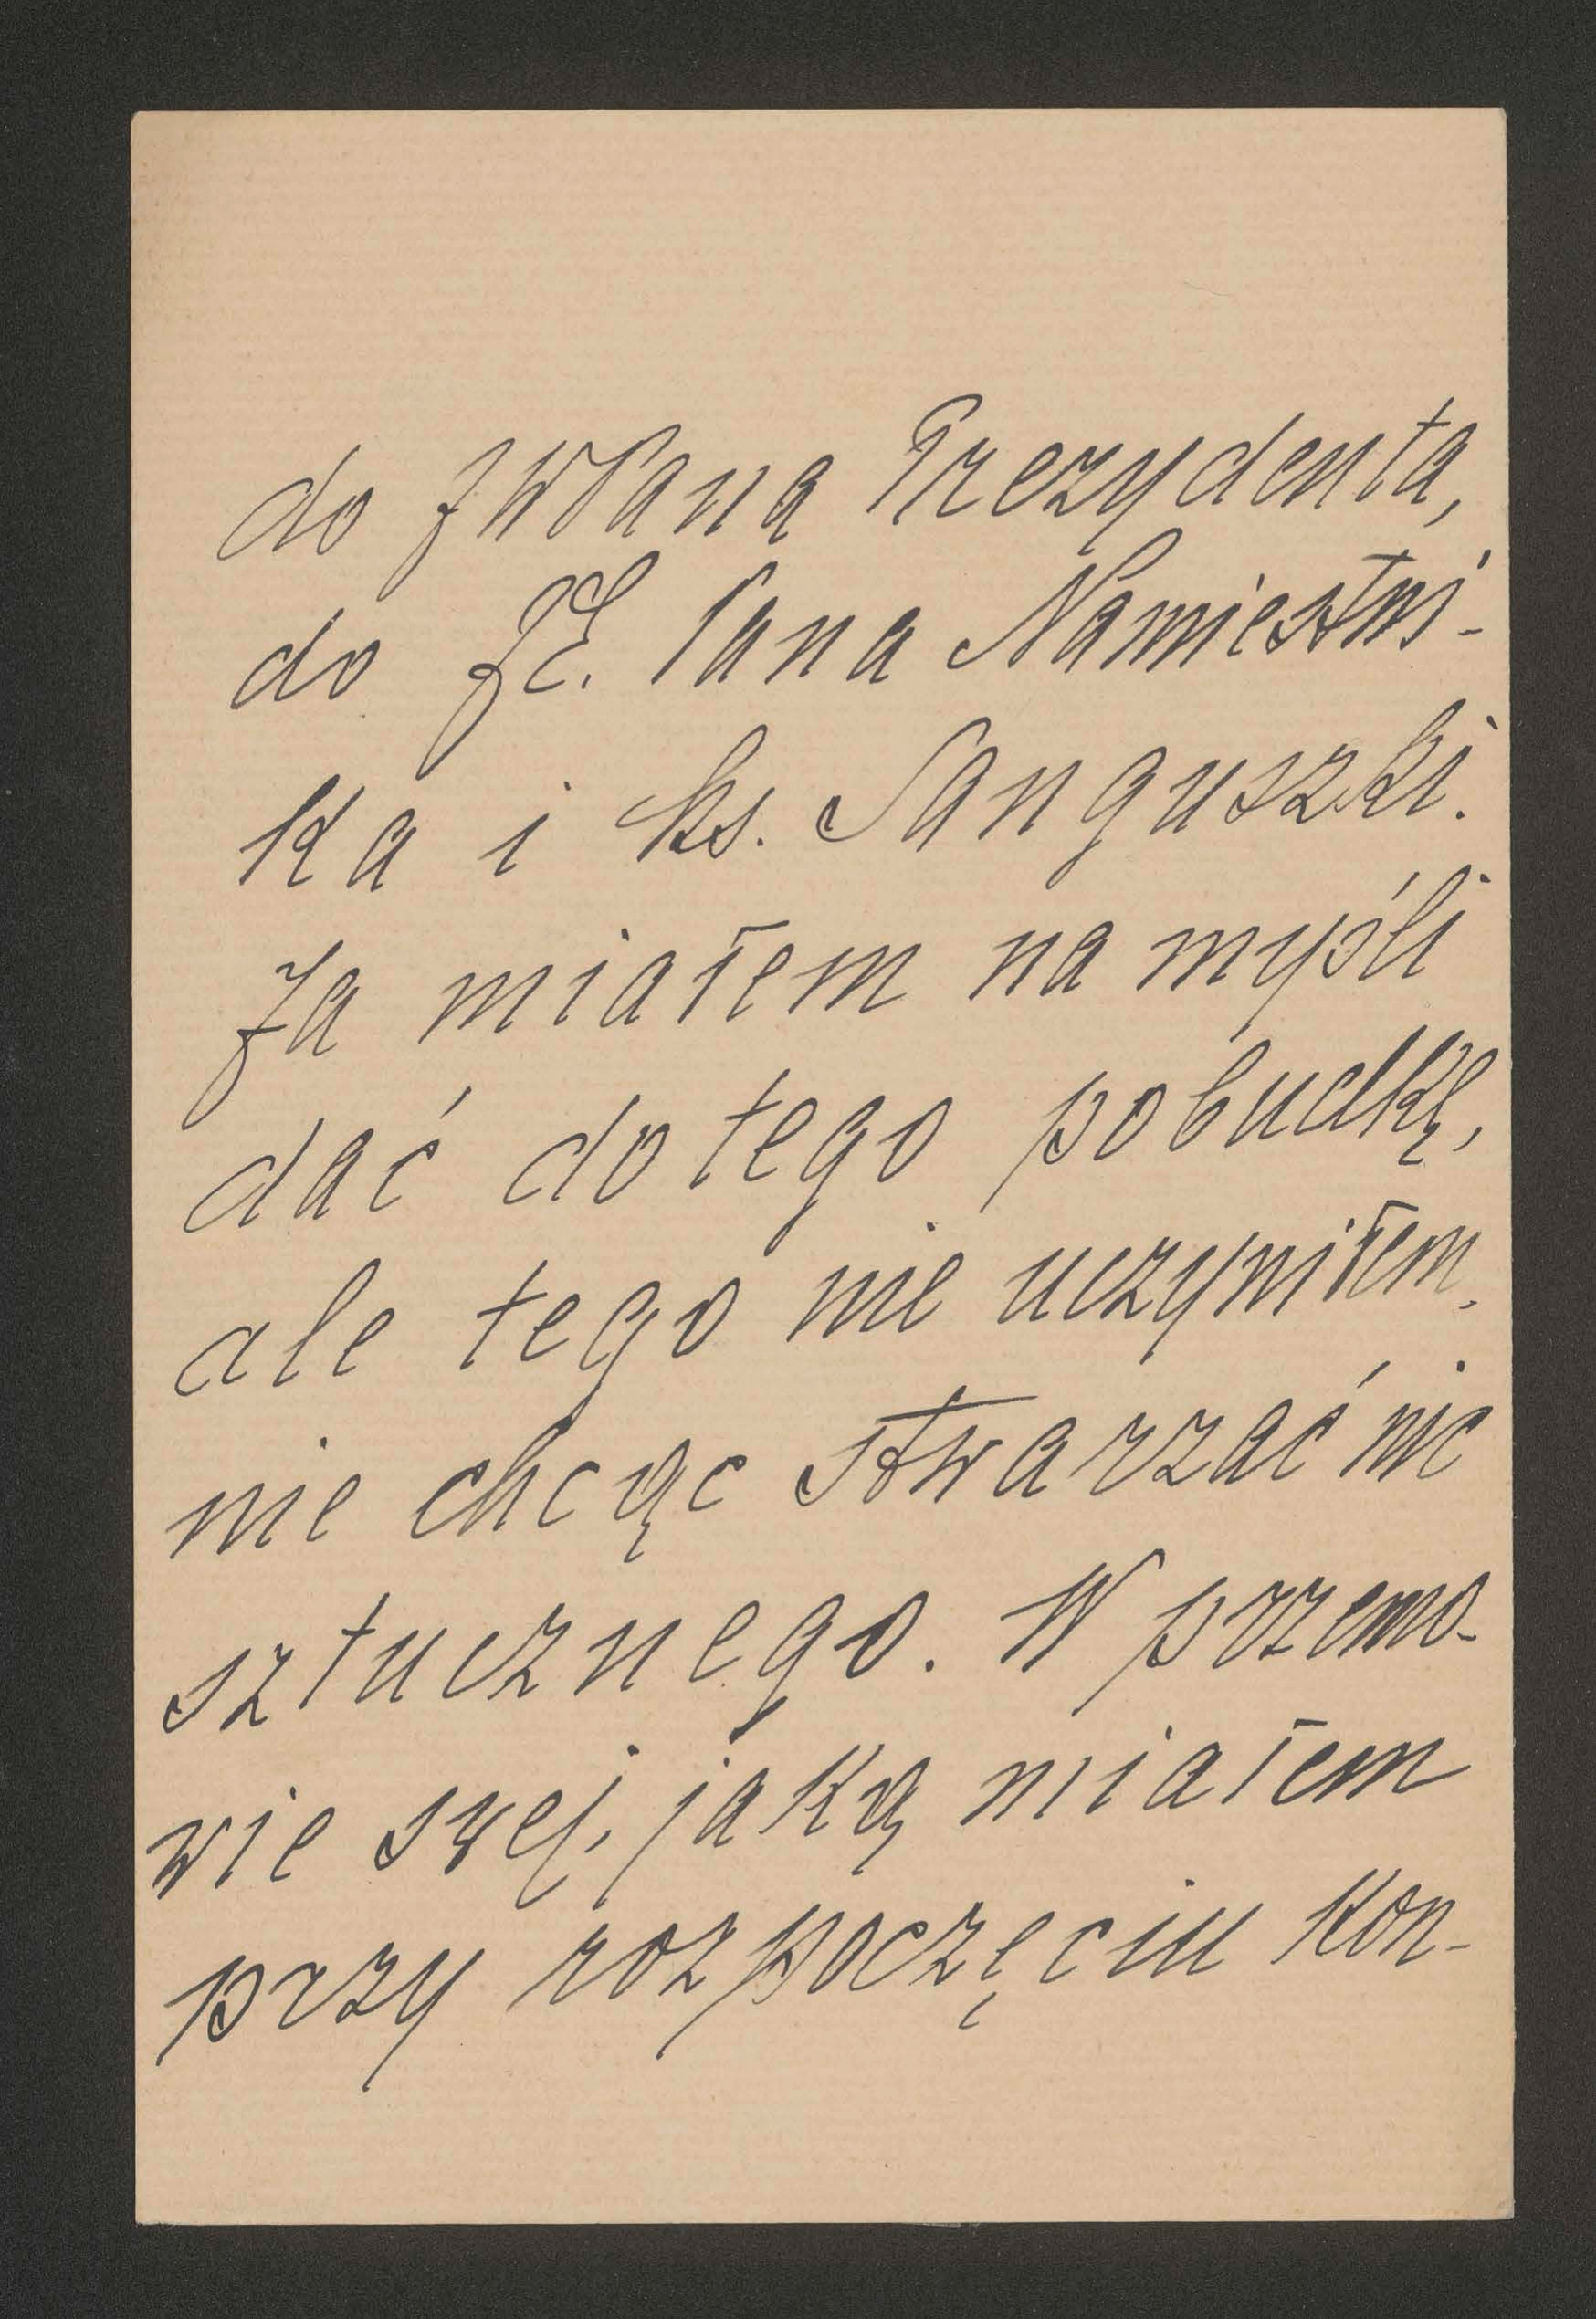 do JWPana Prezydenta,
do JE. Pana Namiestni-
ka i ks. Sanguszki.
Ja miałem na myśli
dać do tego pobudkę,
ale tego nie uczyniłem,
nie chcąc stwarzać nic
sztucznego. W przemo-
wie swej, jaką miałem
przy rozpoczęciu kon-